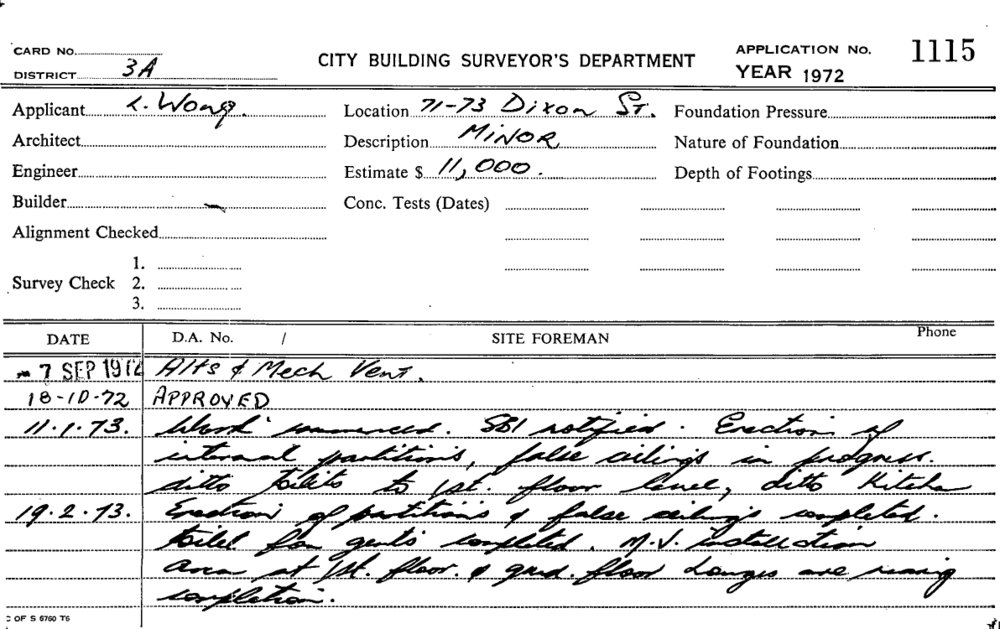 CARD No.
DISTRICT 3A
CITY BUILDING SURVEYOR'S DEPARTMENT
APPLICATION No. 1115
YEAR 1972
Applicant L. Wong.
Location 71-73 Dixon St.
Foundation Pressure
Architect
Description MINOR
Nature of Foundation
Engineer
Estimate $ 11,000.
Depth of Footings
Builder
Conc. Tests (Dates)
Alignment Checked
Survey Check 1.
2.
3.
DATE D.A. No. / SITE FOREMAN Phone
7 SEP 1972 Alts & Mech Vent.
18-10-72 APPROVED
11.1.73. Work commenced. SBI notified. Erection of
internal partitions, false ceilings in progress.
ditto toilets to 1st. floor level, ditto Kitchen
19.2.73. Erection of partitions & false ceilings completed.
Toilet for gents completed. M.V. installation
area at 1st. floor. & grnd. floor Lounges are nearing
completion.
C OF S 6760 T6